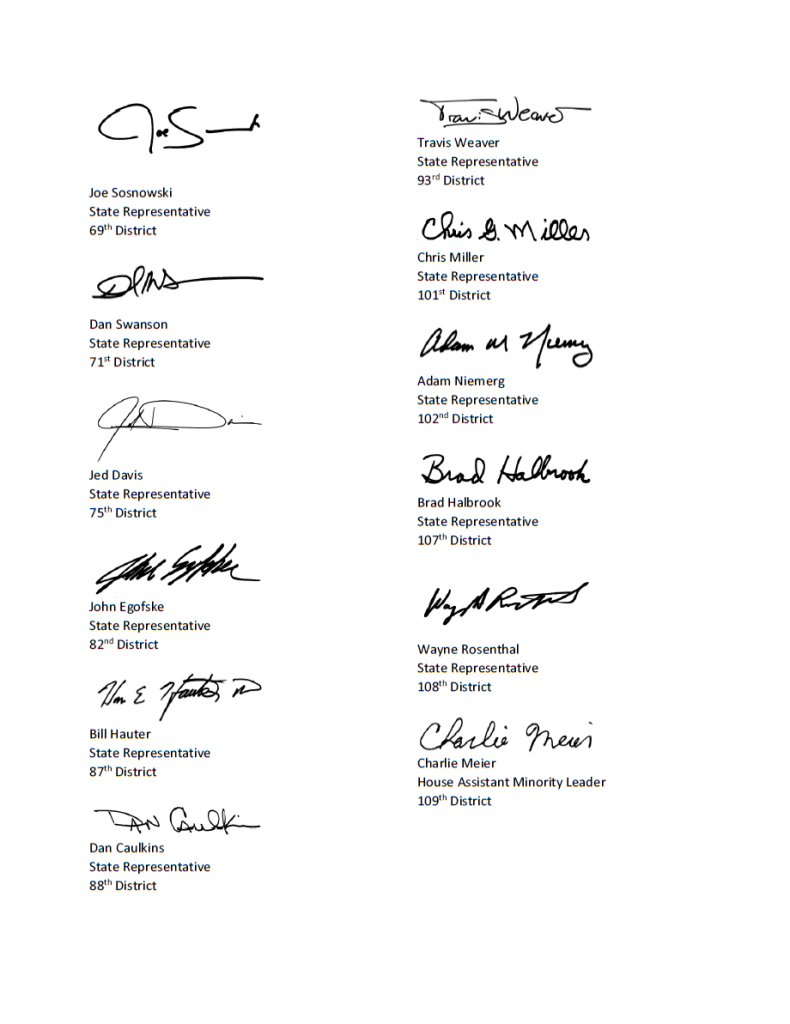 Joe S
Joe Sosnowski
State Representative
69th District
Dan Swanson
State Representative
71st District
Jed Davis
State Representative
75th District
John Egofske
State Representative
82nd District
Bill Hauter
State Representative
87th District
DAN Caulkin
Dan Caulkins
State Representative
88th District
Travis Weaver
Travis Weaver
State Representative
93rd District
Chris G. Miller
Chris Miller
State Representative
101st District
Adam M Niemerg
Adam Niemerg
State Representative
102nd District
Brad Halbrook
Brad Halbrook
State Representative
107th District
Wayne Rosenthal
State Representative
108th District
Charlie Meier
Charlie Meier
House Assistant Minority Leader
109th District